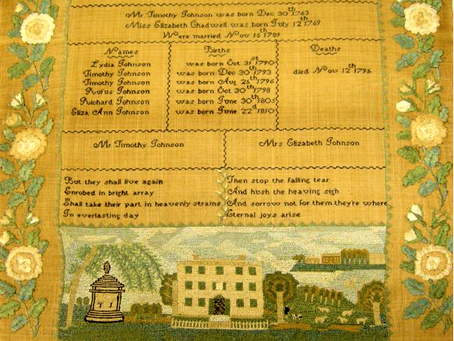 Mr Timothy Johnson was born Dec 30th 1763
Miss Elizabeth Chadwell was born July 12th 1769
Were married Nov 15th 1789
Names Births Deaths
Lydia Johnson was born Oct 31st 1790
Timothy Johnson was born Dec 30th 1793 died Nov 12th 1795
Timothy Johnson was born Aug 25th 1796
Rufos Johnson was born Oct 30th 1798
Ruichard Johnson was born June 30th 1805
Eliza Ann Johnson was born June 22d 1810
Mr Timothy Johnson Mrs Elizabeth Johnson
But they shall live again
Enrobed in bright array
Shall take their part in heavenly strains
In everlasting day
Then stop the falling tear
And hush the heaving sigh
And sorrow not for them they're where
Eternal joys arise